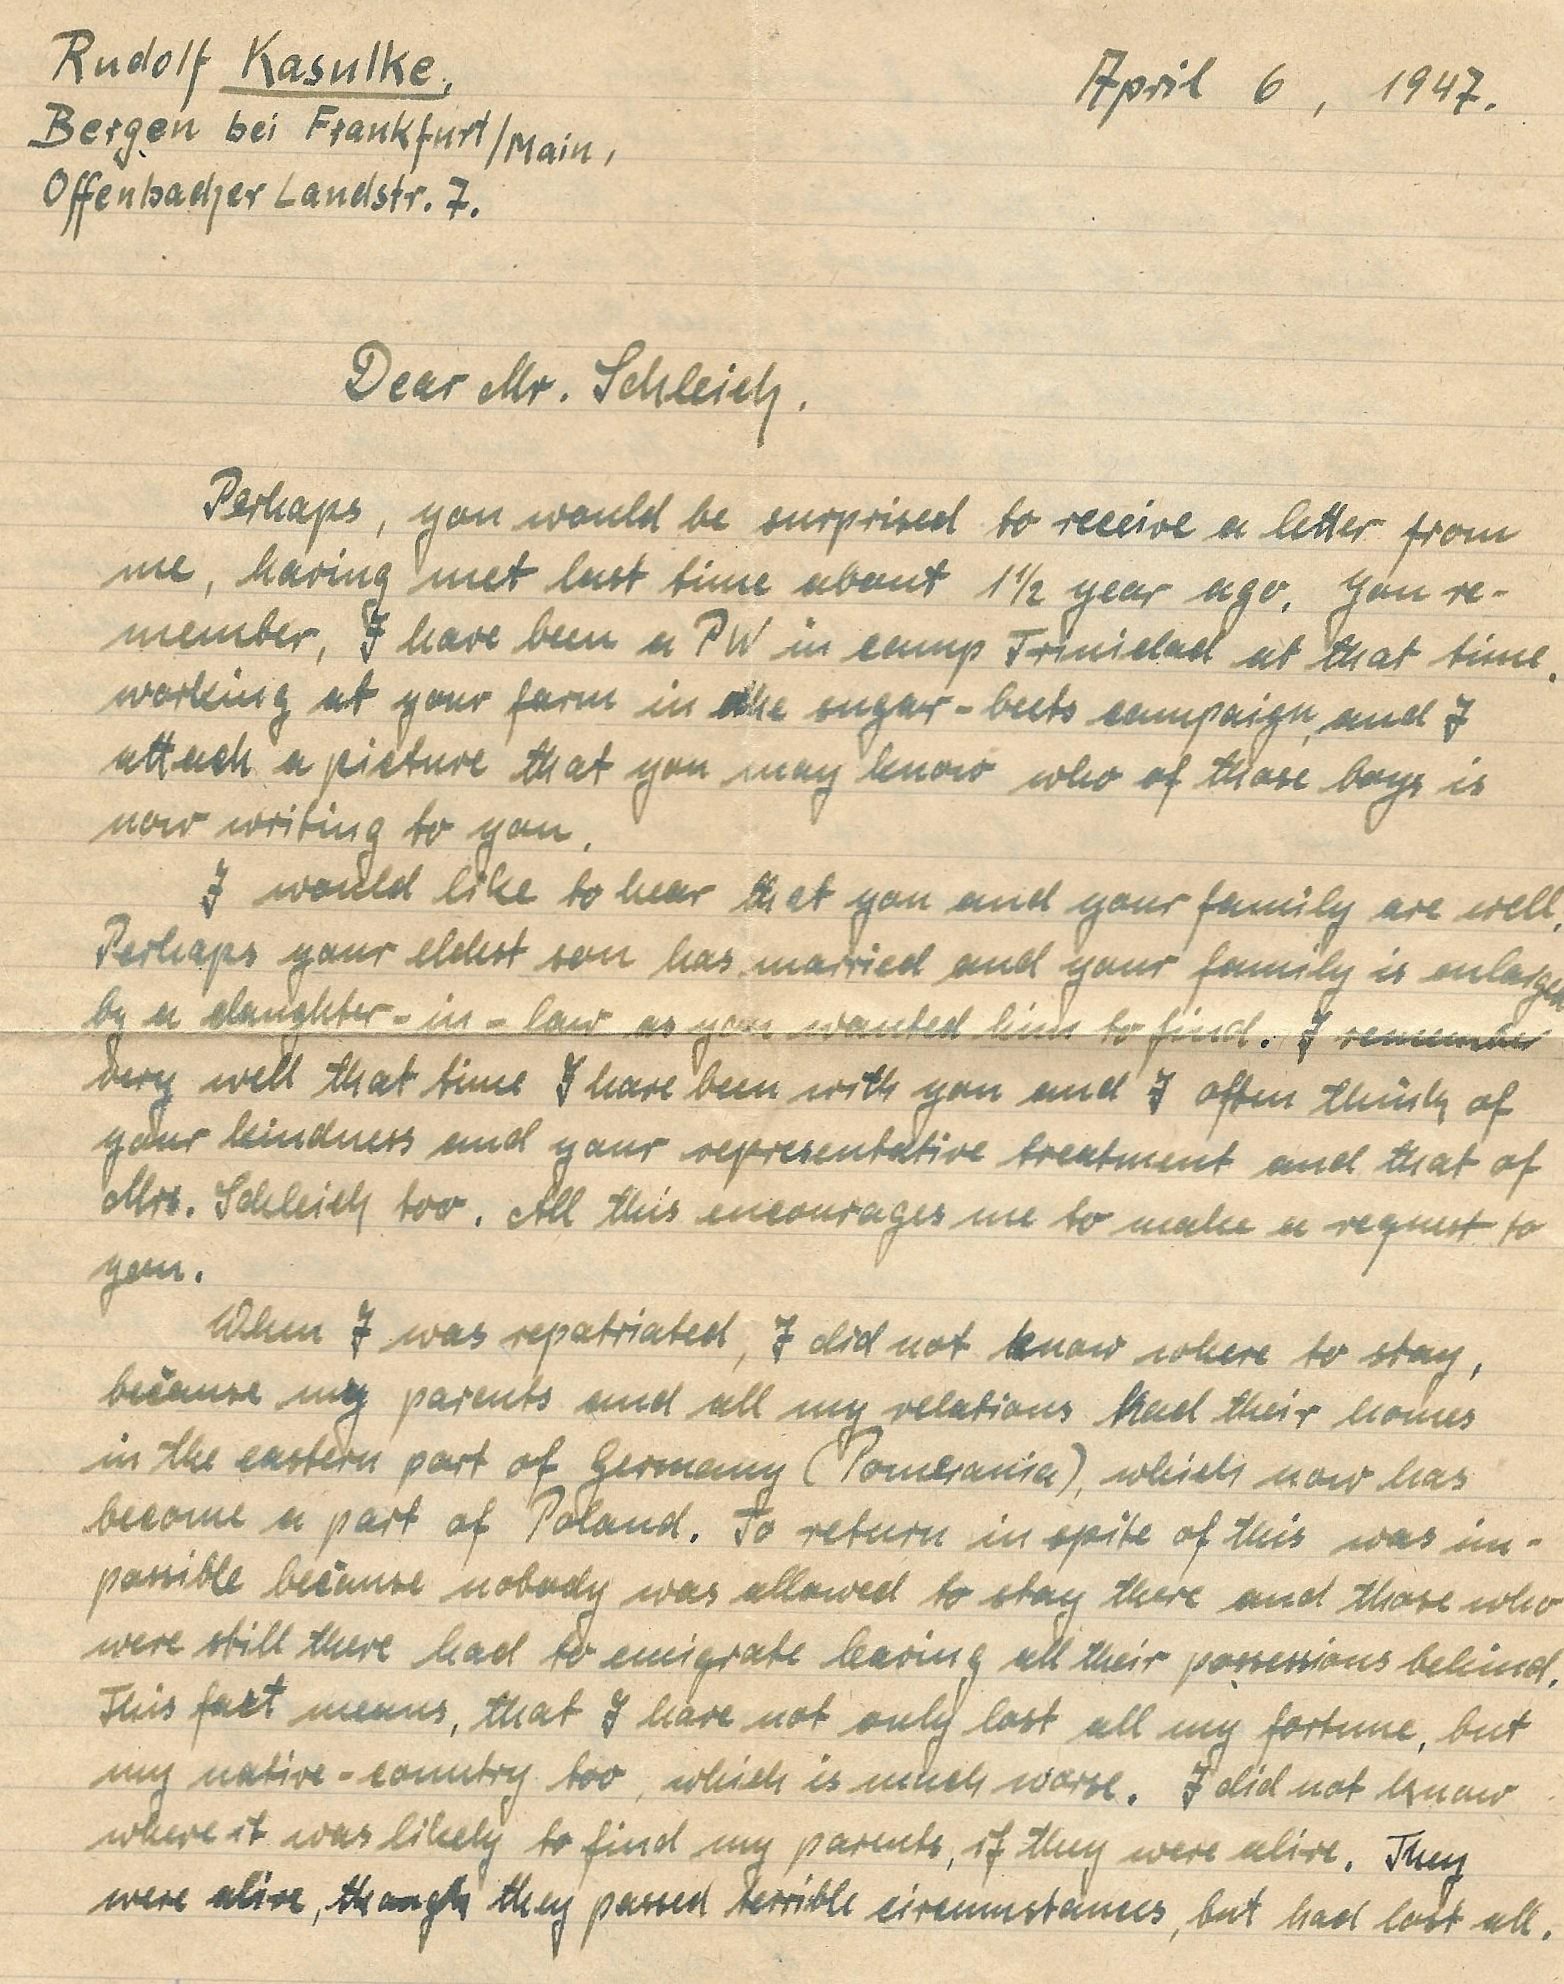 Rudolf Kasulke,
April 6, 1947.
Bergen bei Frankfurt/Main,
Offenbacher Landstr. 7.
Dear Mr. Schleich.
Perhaps, you would be surprised to receive a letter from
me, having met last time about 1½ year ago. You re-
member, I have been a PW in camp Trinidad at that time.
working at your farm in the sugar-beets campaign, and I
attach a picture that you may know who of those boys is
now writing to you.
I would like to hear that you and your family are well.
Perhaps your eldest son has married and your family is enlarged
by a daughter-in-law as you wanted him to find. I remember
very well that time I have been with you and I often think of
your kindness and your representative treatment and that of
Mrs. Schleich too. All this encourages me to make a request to
you.
When I was repatriated, I did not know where to stay,
because my parents and all my relations had their homes
in the eastern part of Germany (Pomerania), which now has
become a part of Poland. To return in spite of this was im-
possible because nobody was allowed to stay there and those who
were still there had to emigrate leaving all their possessions behind.
This fact means, that I have not only lost all my fortune, but
my native-country too, which is much worse. I did not know
where it was likely to find my parents, if they were alive. They
were alive, though they passed terrible circumstances, but had lost all.